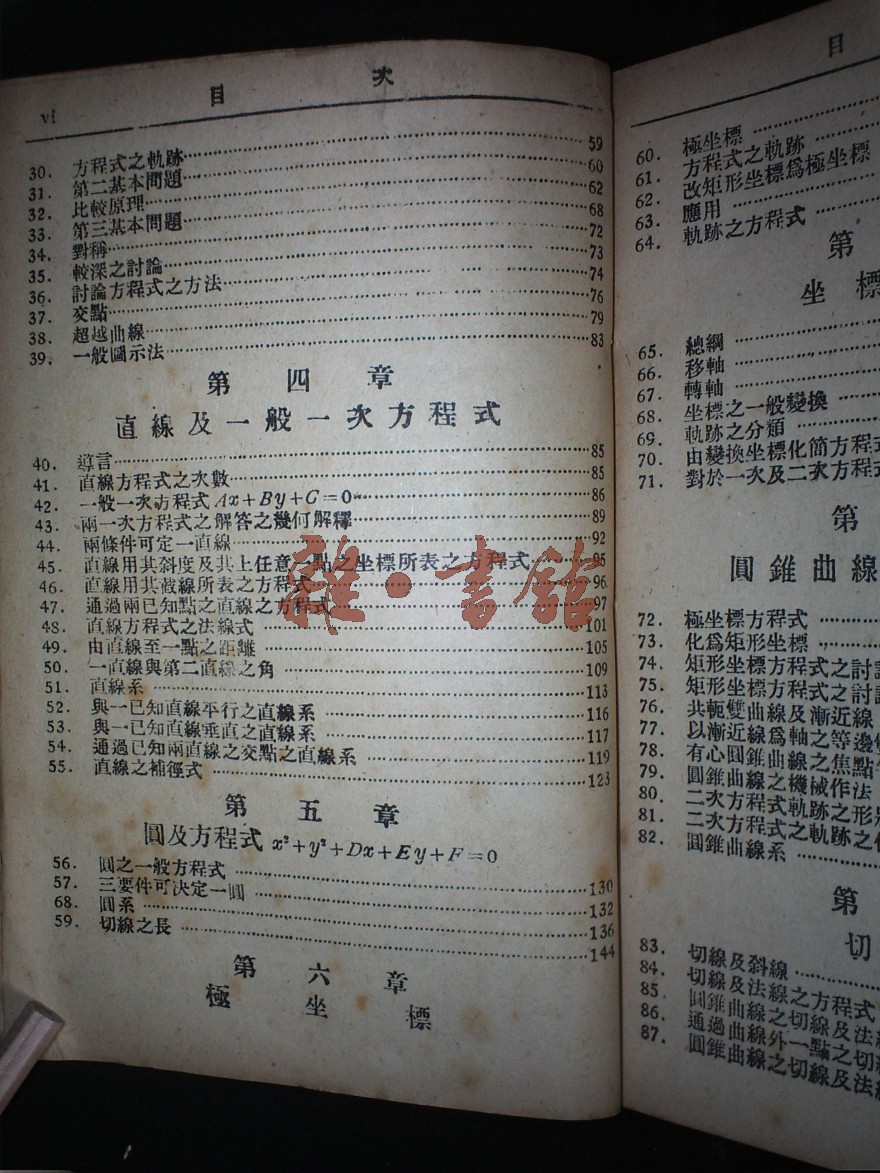 vi 目 次
30. 方程式之軌跡 59
31. 第二基本問題 60
32. 比較原理 62
33. 第三基本問題 68
34. 對稱 72
35. 較深之討論 73
36. 討論方程式之方法 74
37. 交點 76
38. 超越曲線 79
39. 一般圖示法 83
第四章
直線及一般一次方程式
40. 導言 85
41. 直線方程式之次數 85
42. 一般一次方程式 Ax+By+C=0 86
43. 兩一次方程式之解答之幾何解釋 89
44. 兩條件可定一直線 92
45. 直線用其斜度及其上任意一點之坐標所表之方程式 95
46. 直線用其截線所表之方程式 96
47. 通過兩已知點之直線之方程式 97
48. 直線方程式之法線式 101
49. 由直線至一點之距離 105
50. 一直線與第二直線之角 109
51. 直線系 113
52. 與一已知直線平行之直線系 116
53. 與一已知直線垂直之直線系 117
54. 通過已知兩直線之交點之直線系 119
55. 直線之補徑式 123
第五章
圓及方程式 x²+y²+Dx+Ey+F=0
56. 圓之一般方程式 130
57. 三要件可決定一圓 132
68. 圓系 136
59. 切線之長 144
第六章
極坐標
雜·書館
目
60. 極坐標
61. 方程式之軌跡
62. 改矩形坐標爲極坐標
63. 應用
64. 軌跡之方程式
第
坐標
65. 總綱
66. 移軸
67. 轉軸
68. 坐標之一般變換
69. 軌跡之分類
70. 由變換坐標化簡方程式
71. 對於一次及二次方程式
第
圓錐曲線
72. 極坐標方程式
73. 化爲矩形坐標
74. 矩形坐標方程式之討論
75. 矩形坐標方程式之討論
76. 共軛雙曲線及漸近線
77. 以漸近線爲軸之等邊雙
78. 有心圓錐曲線之焦點
79. 圓錐曲線之機械作法
80. 二次方程式軌跡之形狀
81. 二次方程式之軌跡之作
82. 圓錐曲線系
第
切
83. 切線及斜線
84. 切線及法線之方程式
85. 圓錐曲線之切線及法線
86. 通過曲線外一點之切線
87. 圓錐曲線之切線及法線